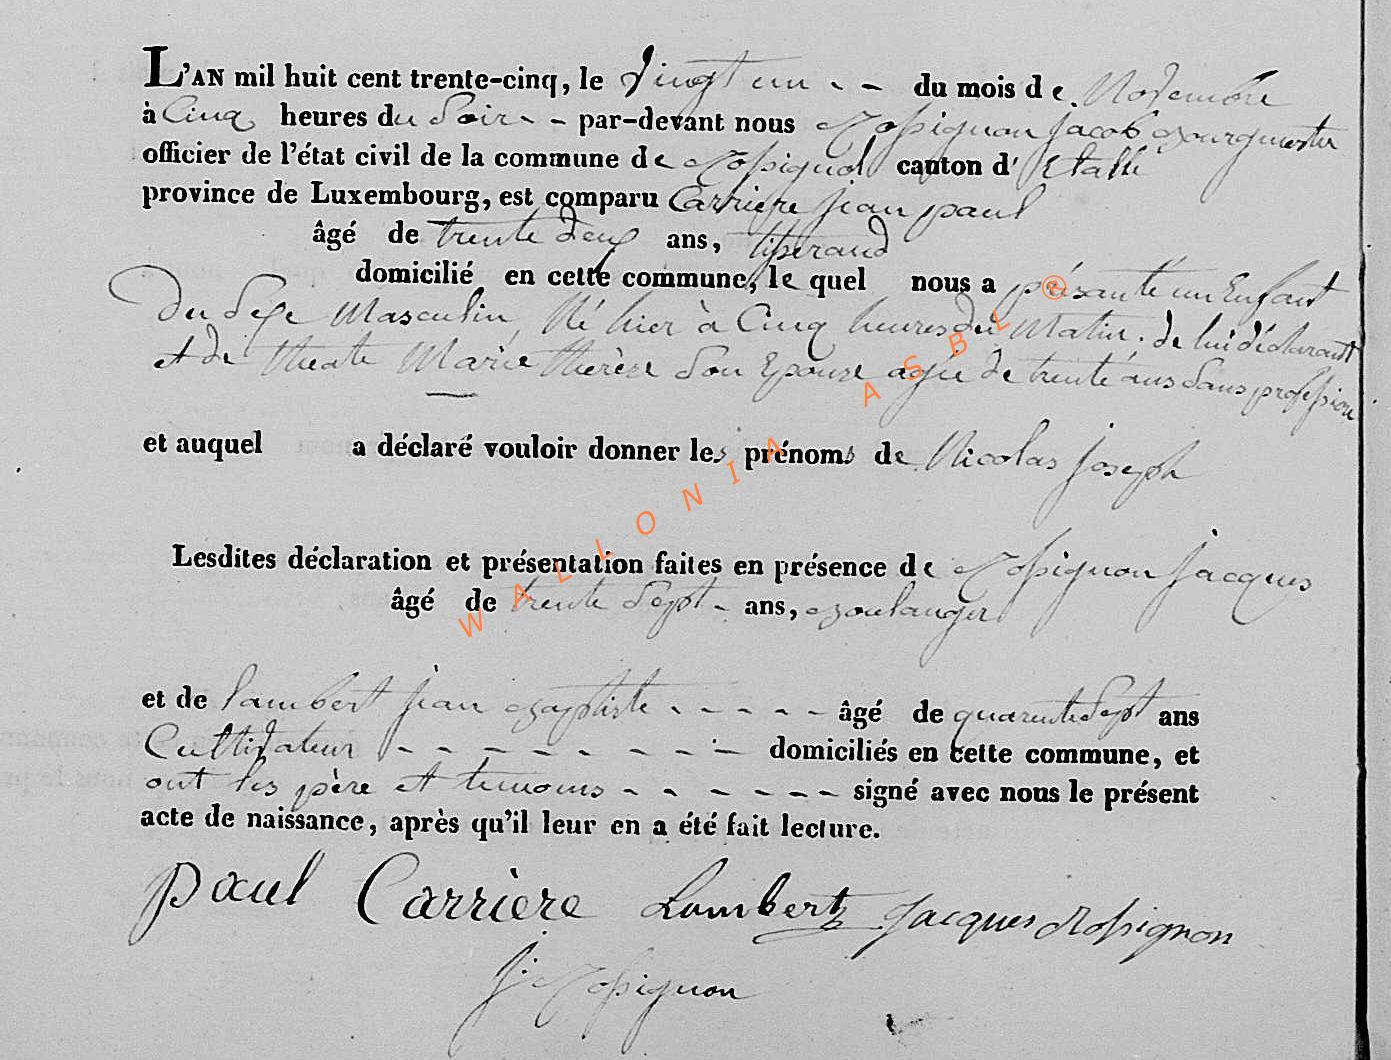 L'AN mil huit cent trente-cinq, le vingt un - - du mois de Novembre
à Cinq heures du Soir - - par-devant nous Rossignon Jacob Bourguestre
officier de l'état civil de la commune de Rossignol canton d' Etalle
province de Luxembourg, est comparu Carriere jean paul
âgé de trente deux ans, tisserand
domicilié en cette commune, le quel nous a présanté un Enfant
Du Sexe Masculin, Né hier à Cinq heures du Matin. de lui déclarant
et de theate Marie thérèse Son Epouse agée de trente ans Sans profession
et auquel a déclaré vouloir donner les prénoms de Nicolas joseph
Lesdites déclaration et présentation faites en présence de Rossignon jacques
âgé de trente Sept - ans, Boulanger
et de lambert jean Baptiste - - - - - âgé de quarente Sept ans
Cultivateur - - - - - - - - - domiciliés en cette commune, et
ont les père et temoins - - - - - - signé avec nous le présent
acte de naissance, après qu'il leur en a été fait lecture.
paul Carriere Lambert Jacques Rossignon
J. Rossignon
WALLONIA ASBL ©